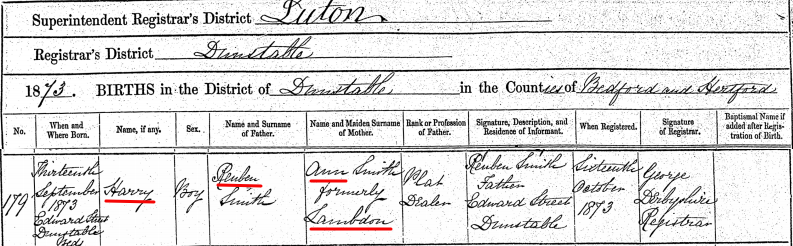 Superintendent Registrar's District Luton
Registrar's District Dunstable
1873. BIRTHS in the District of Dunstable in the Counties of Bedford and Hertford
No.
When and
Where Born.
Name, if any.
Sex.
Name and Surname
of Father.
Name and Maiden Surname
of Mother.
Rank or Profession
of Father.
Signature, Description, and
Residence of Informant.
When Registered.
Signature
of Registrar.
Baptismal Name if
added after Regis-
tration of Birth.
179
Thirteenth
September
1873
Edward Street
Dunstable
Beds
Harry
Boy
Reuben
Smith
Ann Smith
formerly
Lambdon
Plat
Dealer
Reuben Smith
Father
Edward Street
Dunstable
Sixteenth
October
1873
George
Derbyshire
Registrar